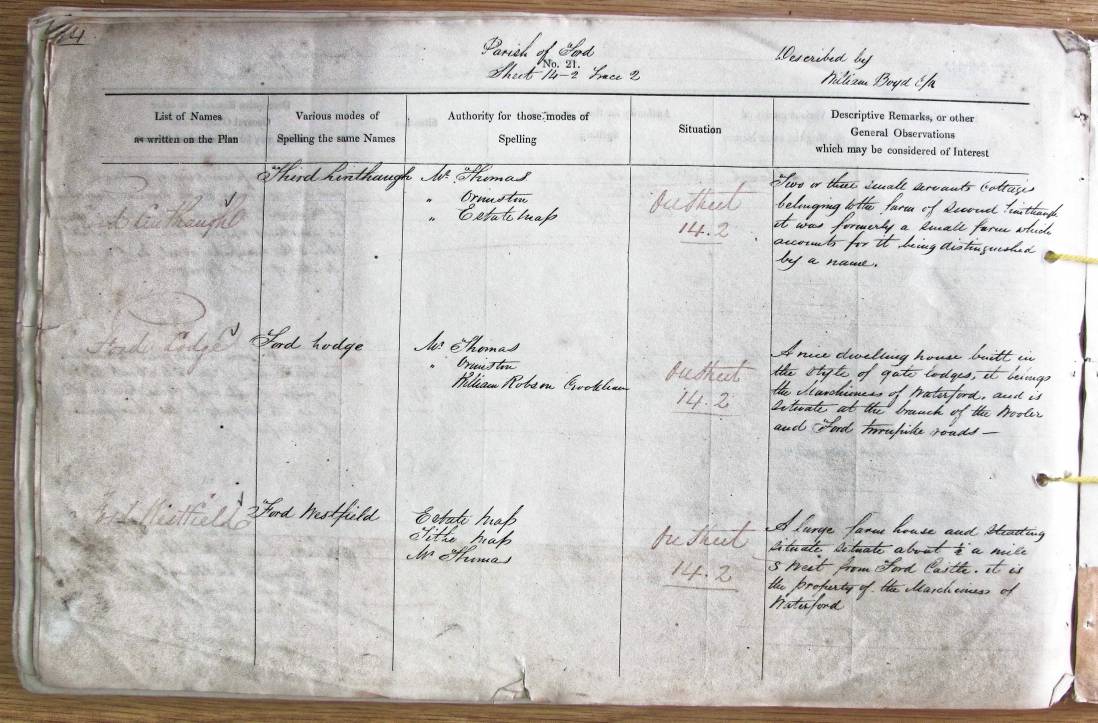 64
Parish of Ford
No. 21.
Sheet 14-2 Trace 2
Described by
William Boyd C/A
List of Names
as written on the Plan
Various modes of
Spelling the same Names
Authority for those modes of
Spelling
Situation
Descriptive Remarks, or other
General Observations
which may be considered of Interest
Linthaugh
Third Linthaugh
Mr. Thomas
" Ormiston
" Estate Map
On Sheet
14.2
Two or three small servants Cottages
belonging to the farm of Second Linthaugh
it was formerly a small farm which
accounts for it being distinguished
by a name.
Ford Lodge
Ford Lodge
Mr. Thomas
" Ormiston
William Robson Crookham
On Sheet
14.2
A nice dwelling house built in
the style of gate lodges, it belongs
the Marchioness of Waterford, and is
situate at the branch of the Wooler
and Ford turnpike roads —
Ford Westfield
Ford Westfield
Estate Map
Tithe Map
Mr Thomas
On Sheet
14.2
A large farm house and steading
situate situate about a mile
S West from Ford Castle. it is
the property of the Marchioness of
Waterford